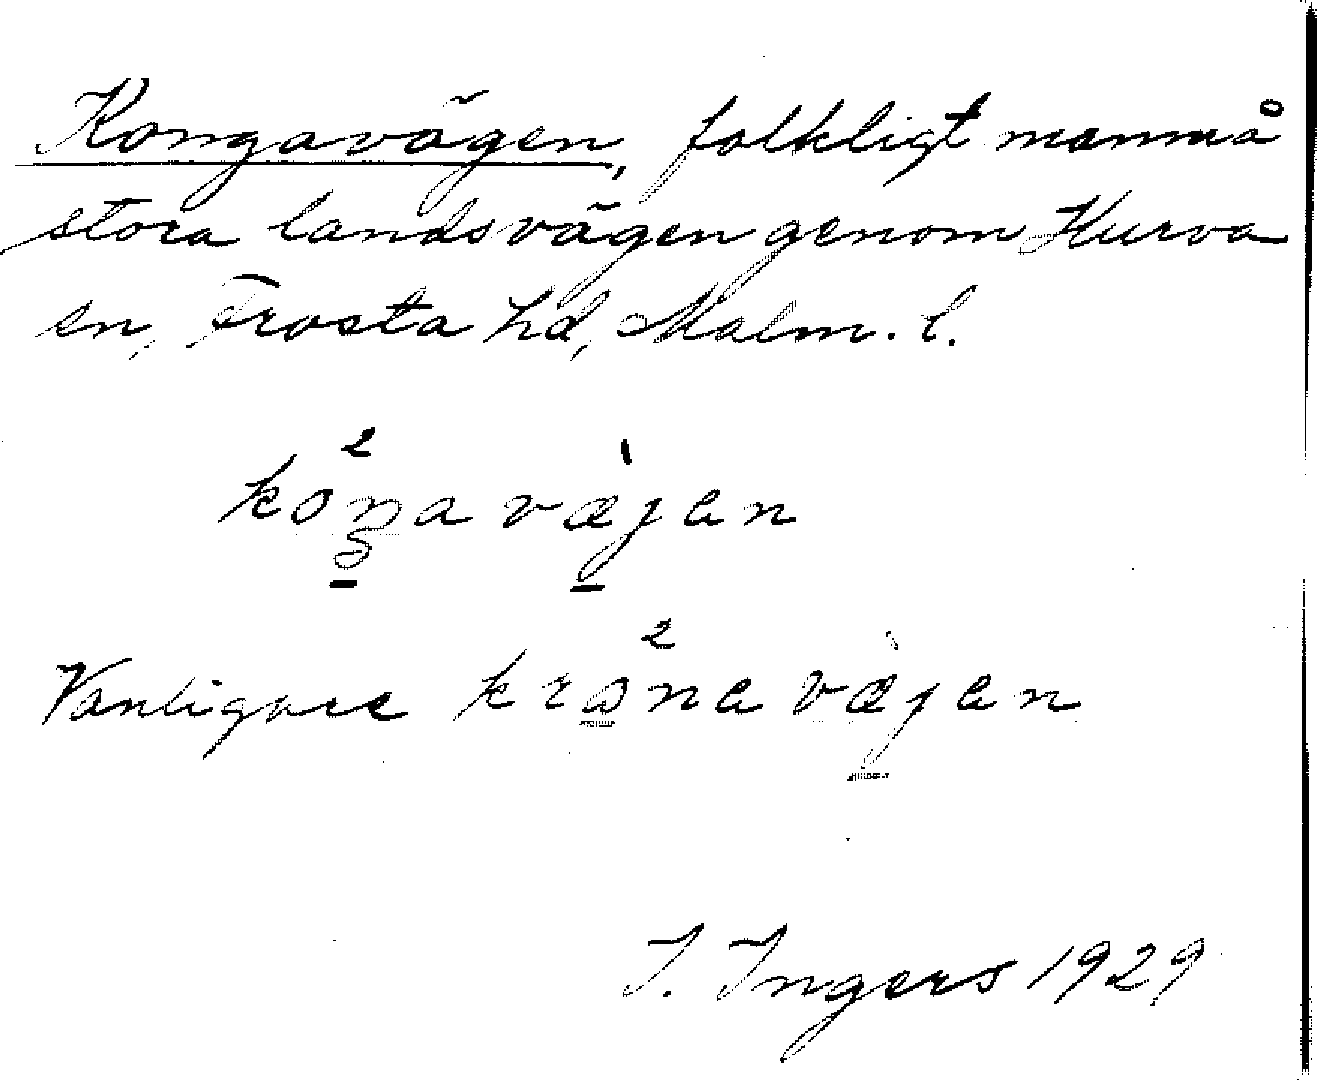 Kongavägen, folkligt namn på
stora landsvägen genom Hurva
sn, Frosta hd, Malm. l.
koŋavæjen
Vanligare kronavæjen
I. Ingers 1929